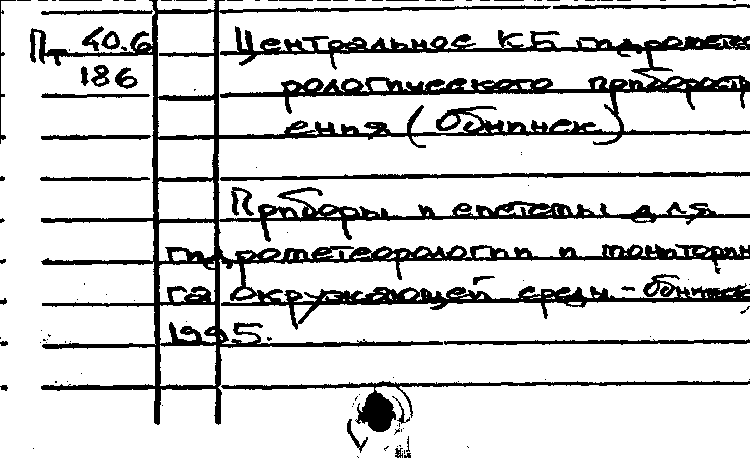 Пт 40.6 Центральное КБ гидрометео
186 рологического приборостр
ения (Обнинск)
Приборы и системы для
гидрометеорологии и монторин
га окружающей среды. - Обнинск,
1995.